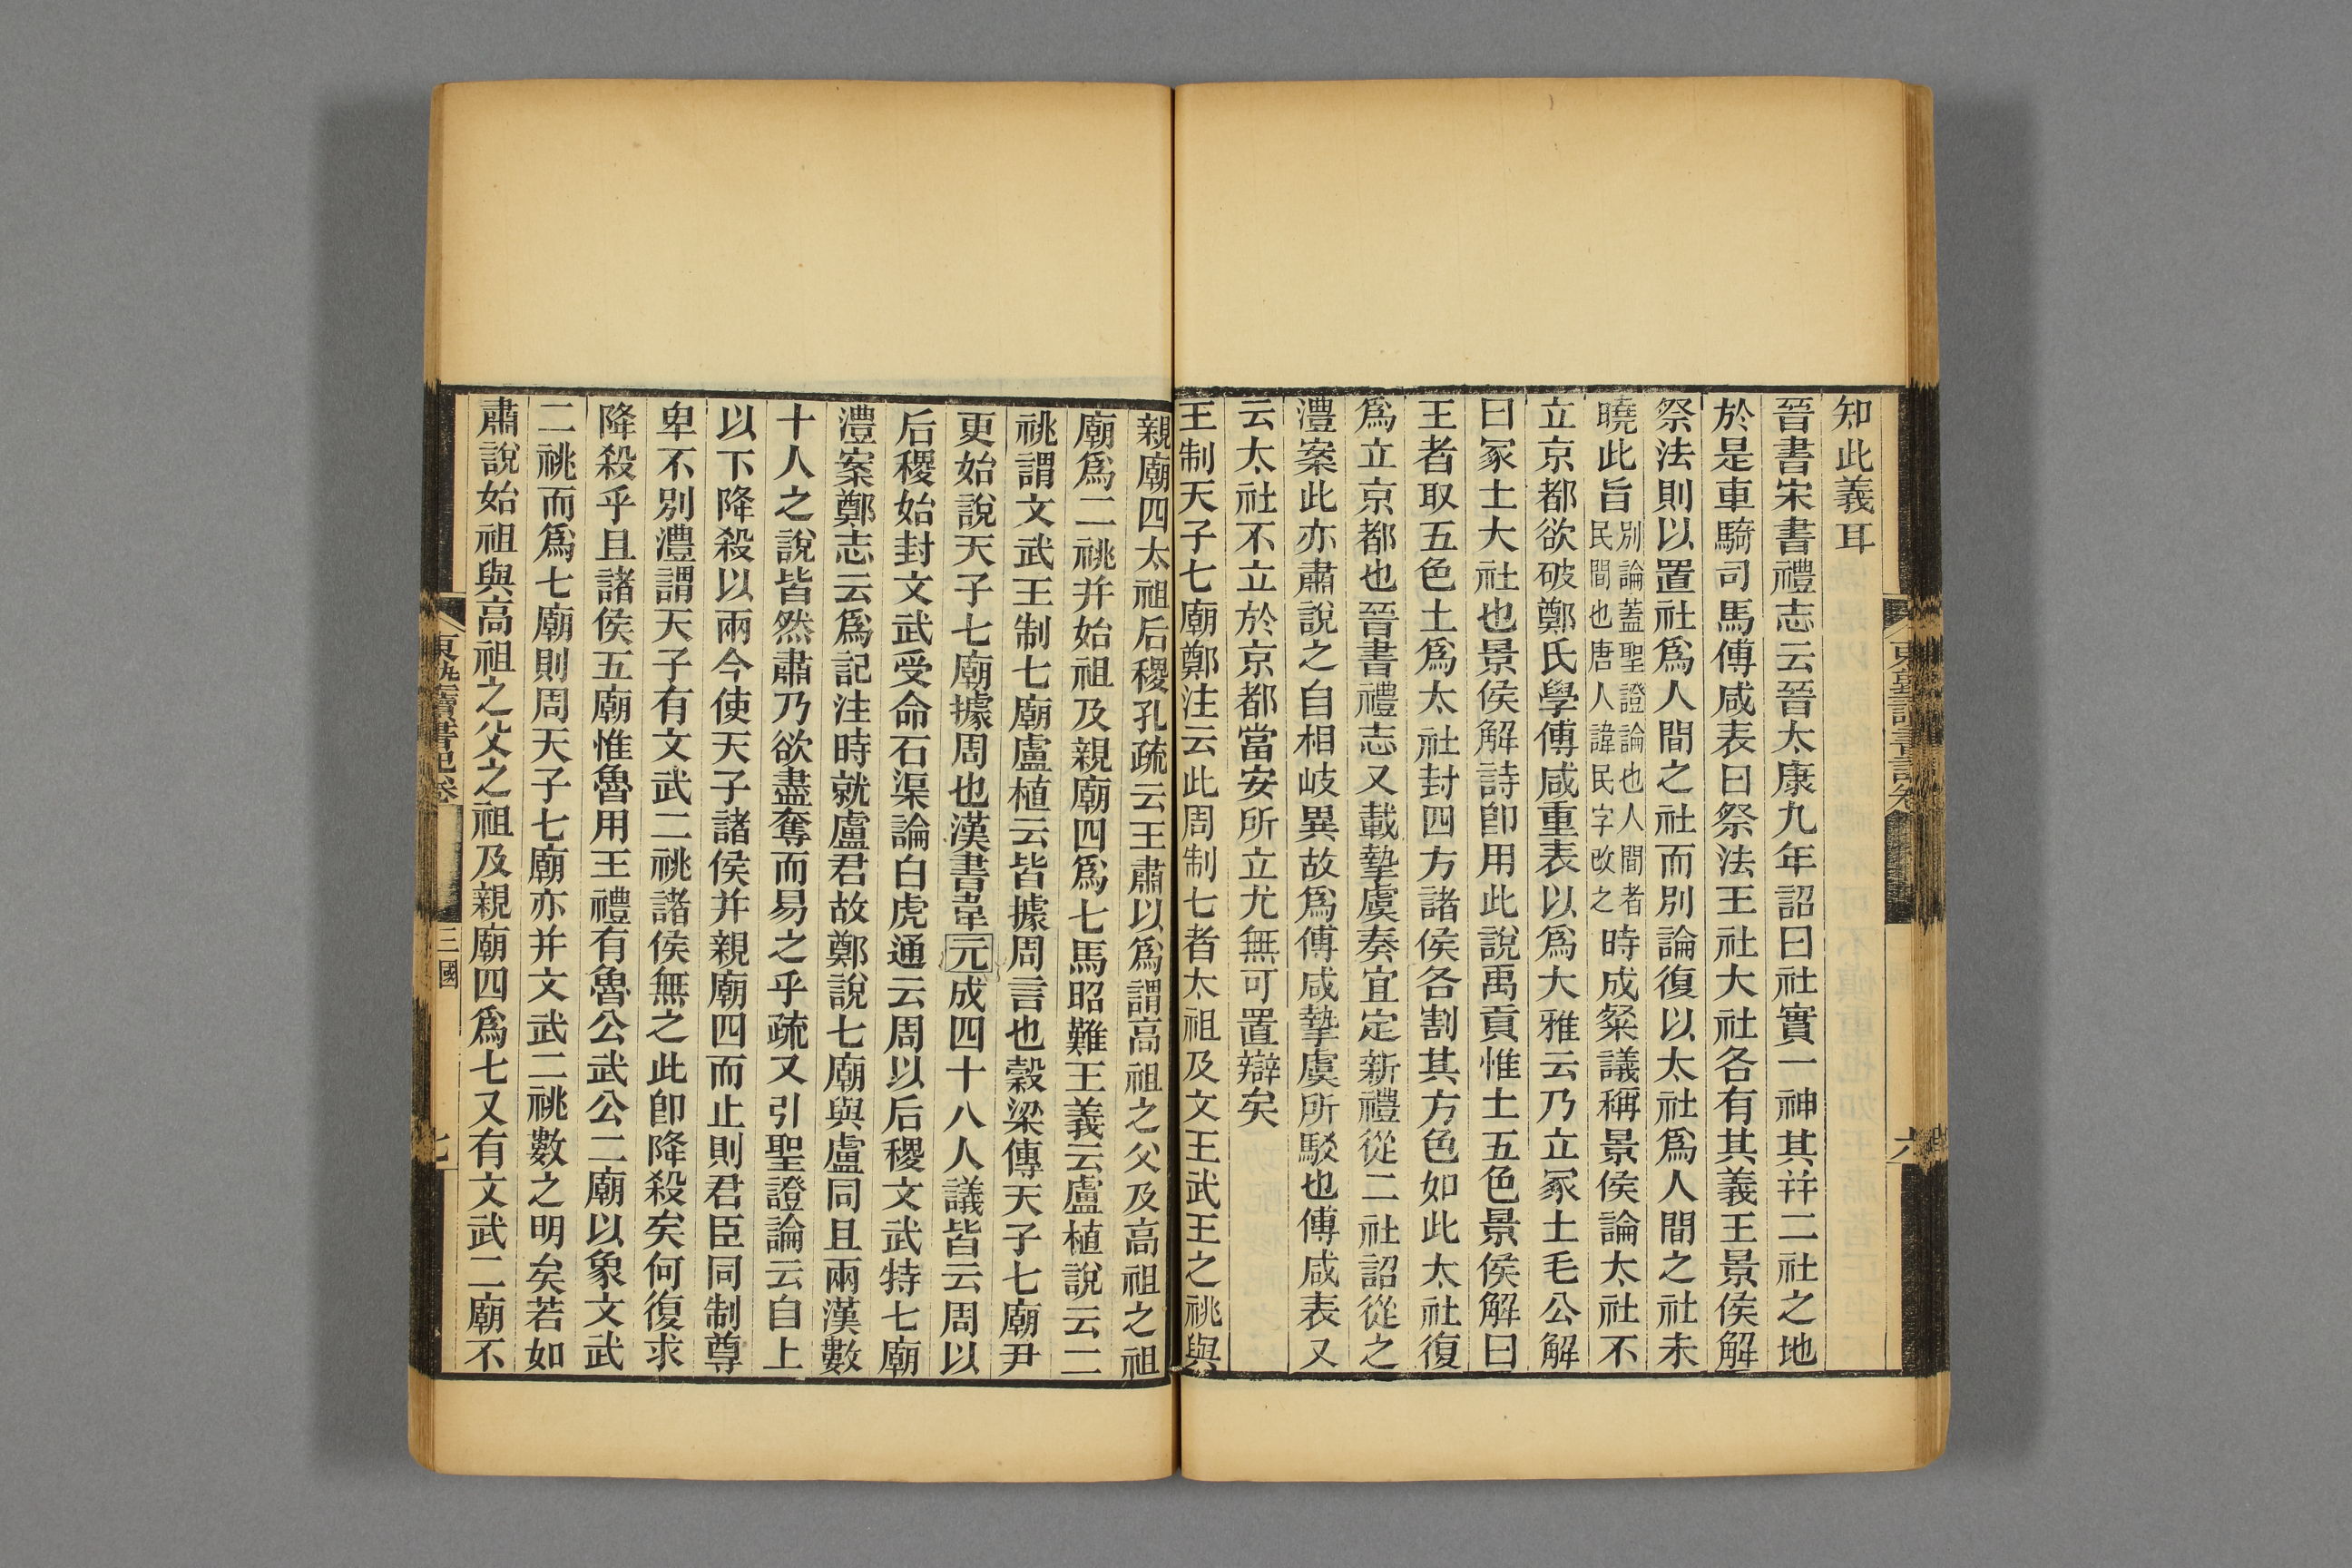 知此義耳
晉書宋書禮志云晉太康九年詔曰社實一神其幷二社之地
於是車騎司馬傅咸表曰祭法王社大社各有其義王景侯解
祭法則以置社爲人間之社而別論復以太社爲人間之社未
曉此旨別論蓋聖證論也人間者民間也唐人諱民字改之時成粲議稱景侯論太社不
立京都欲破鄭氏學傅咸重表以爲大雅云乃立冢土毛公解
曰冢土大社也景侯解詩卽用此說禹貢惟土五色景侯解曰
王者取五色土爲太社封四方諸侯各割其方色如此太社復
爲立京都也晉書禮志又載摯虞奏宜定新禮從二社詔從之
澧案此亦肅說之自相岐異故爲傅咸摯虞所駁也傅咸表又
云太社不立於京都當安所立尤無可置辯矣
王制天子七廟鄭注云此周制七者太祖及文王武王之祧與
親廟四太祖后稷孔疏云王肅以爲謂高祖之父及高祖之祖
廟爲二祧并始祖及親廟四爲七馬昭難王義云盧植說云二
祧謂文武王制七廟盧植云皆據周言也穀梁傳天子七廟尹
更始說天子七廟據周也漢書韋元成四十八人議皆云周以
后稷始封文武受命石渠論白虎通云周以后稷文武特七廟
澧案鄭志云爲記注時就盧君故鄭說七廟與盧同且兩漢數
十人之說皆然肅乃欲盡奪而易之乎疏又引聖證論云自上
以下降殺以兩今使天子諸侯并親廟四而止則君臣同制尊
卑不別澧謂天子有文武二祧諸侯無之此卽降殺矣何復求
降殺乎且諸侯五廟惟魯用王禮有魯公武公二廟以象文武
二祧而爲七廟則周天子七廟亦并文武二祧數之明矣若如
肅說始祖與高祖之父之祖及親廟四爲七又有文武二廟不
東塾讀書記卷
三國
七